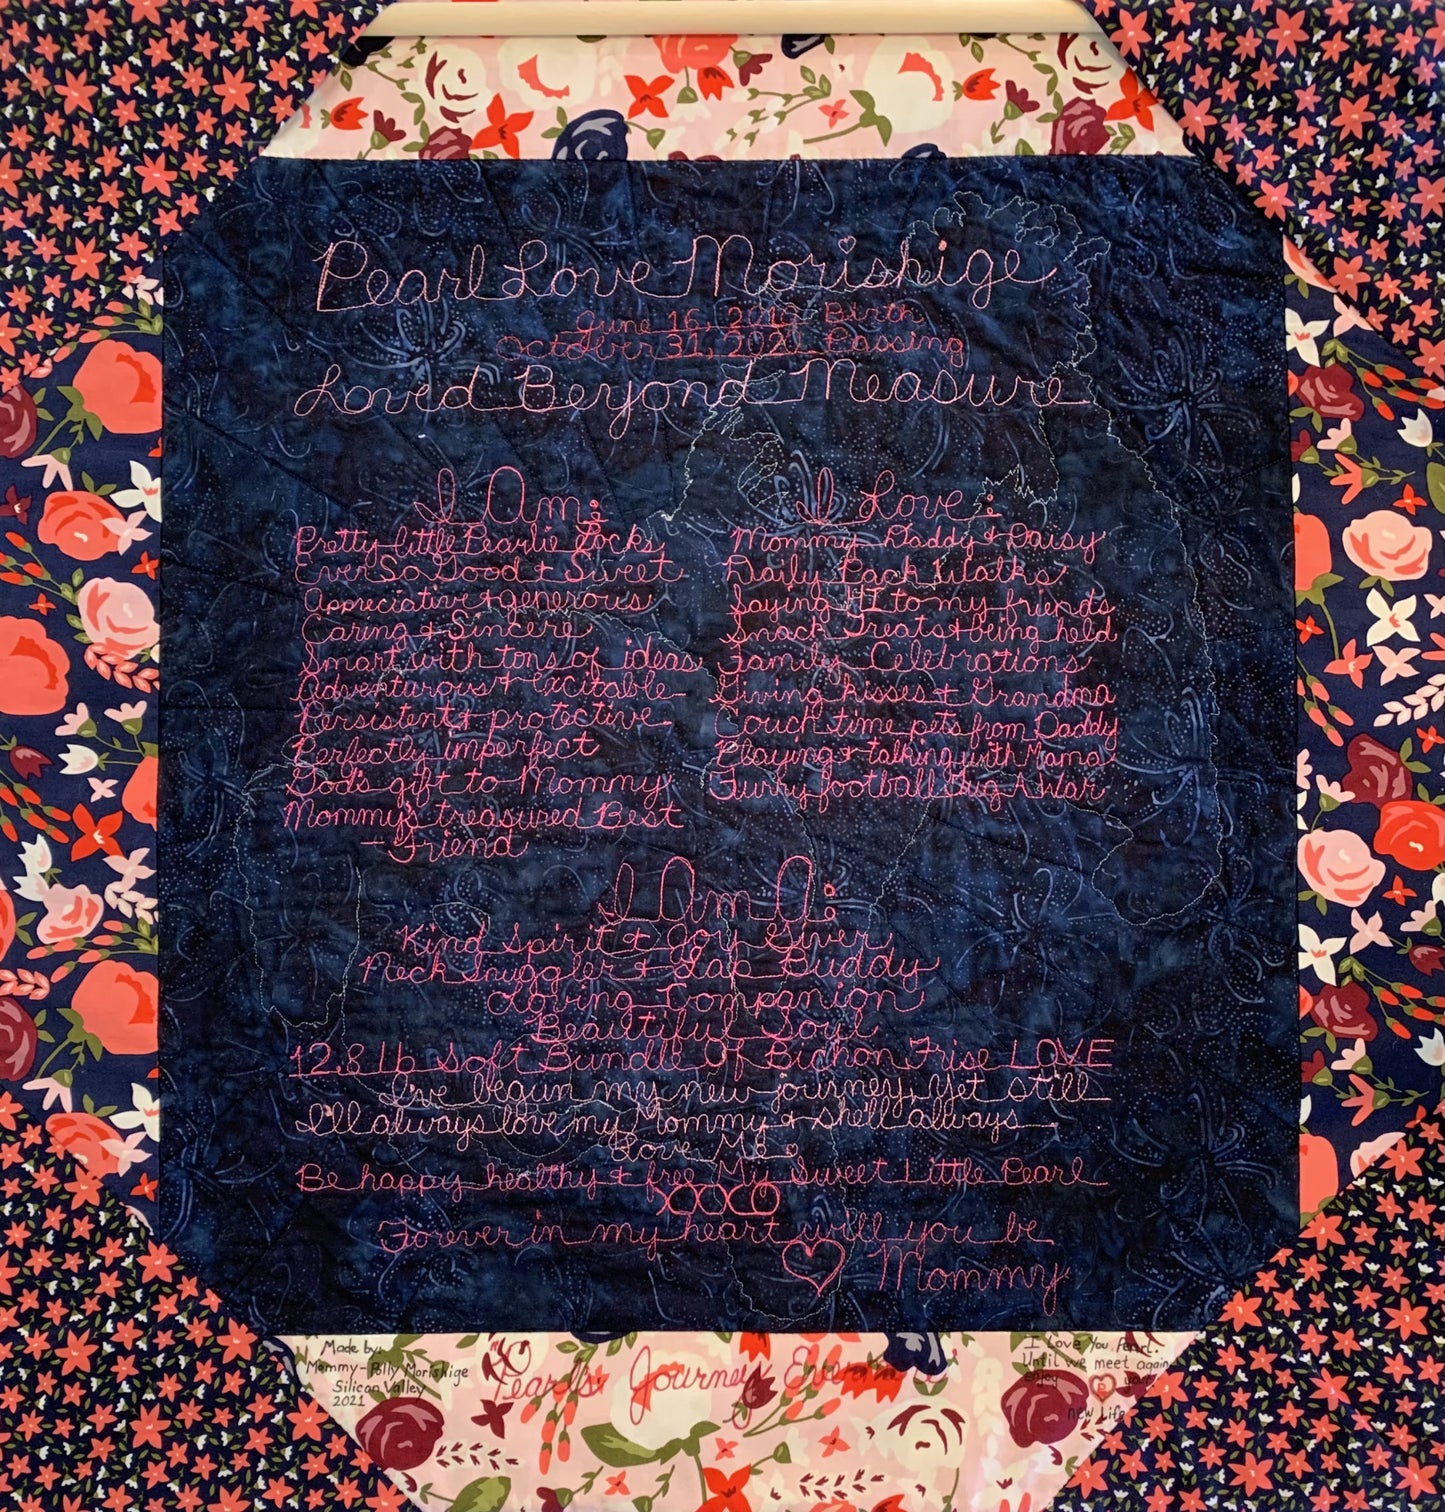 Pearl Love Morishige
June 16, Birth
October 31, 2020 Passing
Loved Beyond Measure
I Am:
Pretty little Pearlie Locks
Ever So Good + Sweet
Appreciative + generous
Caring + Sincere
Smart with tons of ideas
Adventurous + excitable
Persistent + protective
Perfectly imperfect
God's gift to Mommy
Mommy's treasured Best
-Friend
I Love:
Mommy Daddy + Daisy
Daily Park Walks
Saying HI to my friends
Snack Treats + being held
Family Celebrations
Giving kisses + Grandma
Couch time pets from Daddy
Playing + talking with Mama
Furry football Tug A War
I Am A:
Kind Spirit + Joy Giver
Neck Snuggler + Lap Buddy
Loving Companion
Beautiful Soul
12.8 lb Soft Bundle Of Bichon Frise LOVE
I've begun my new journey, Yet still
I'll always love my Mommy + she'll always
Love Me.
Be happy healthy + free My Sweet Little Pearl
XOXO
Forever in my heart will you be
Mommy
Made by:
Mommy-Polly Morishige
Silicon Valley
2021
Pearl's Journey
I Love You Pearl.
Until we meet again
enjoy your
new Life